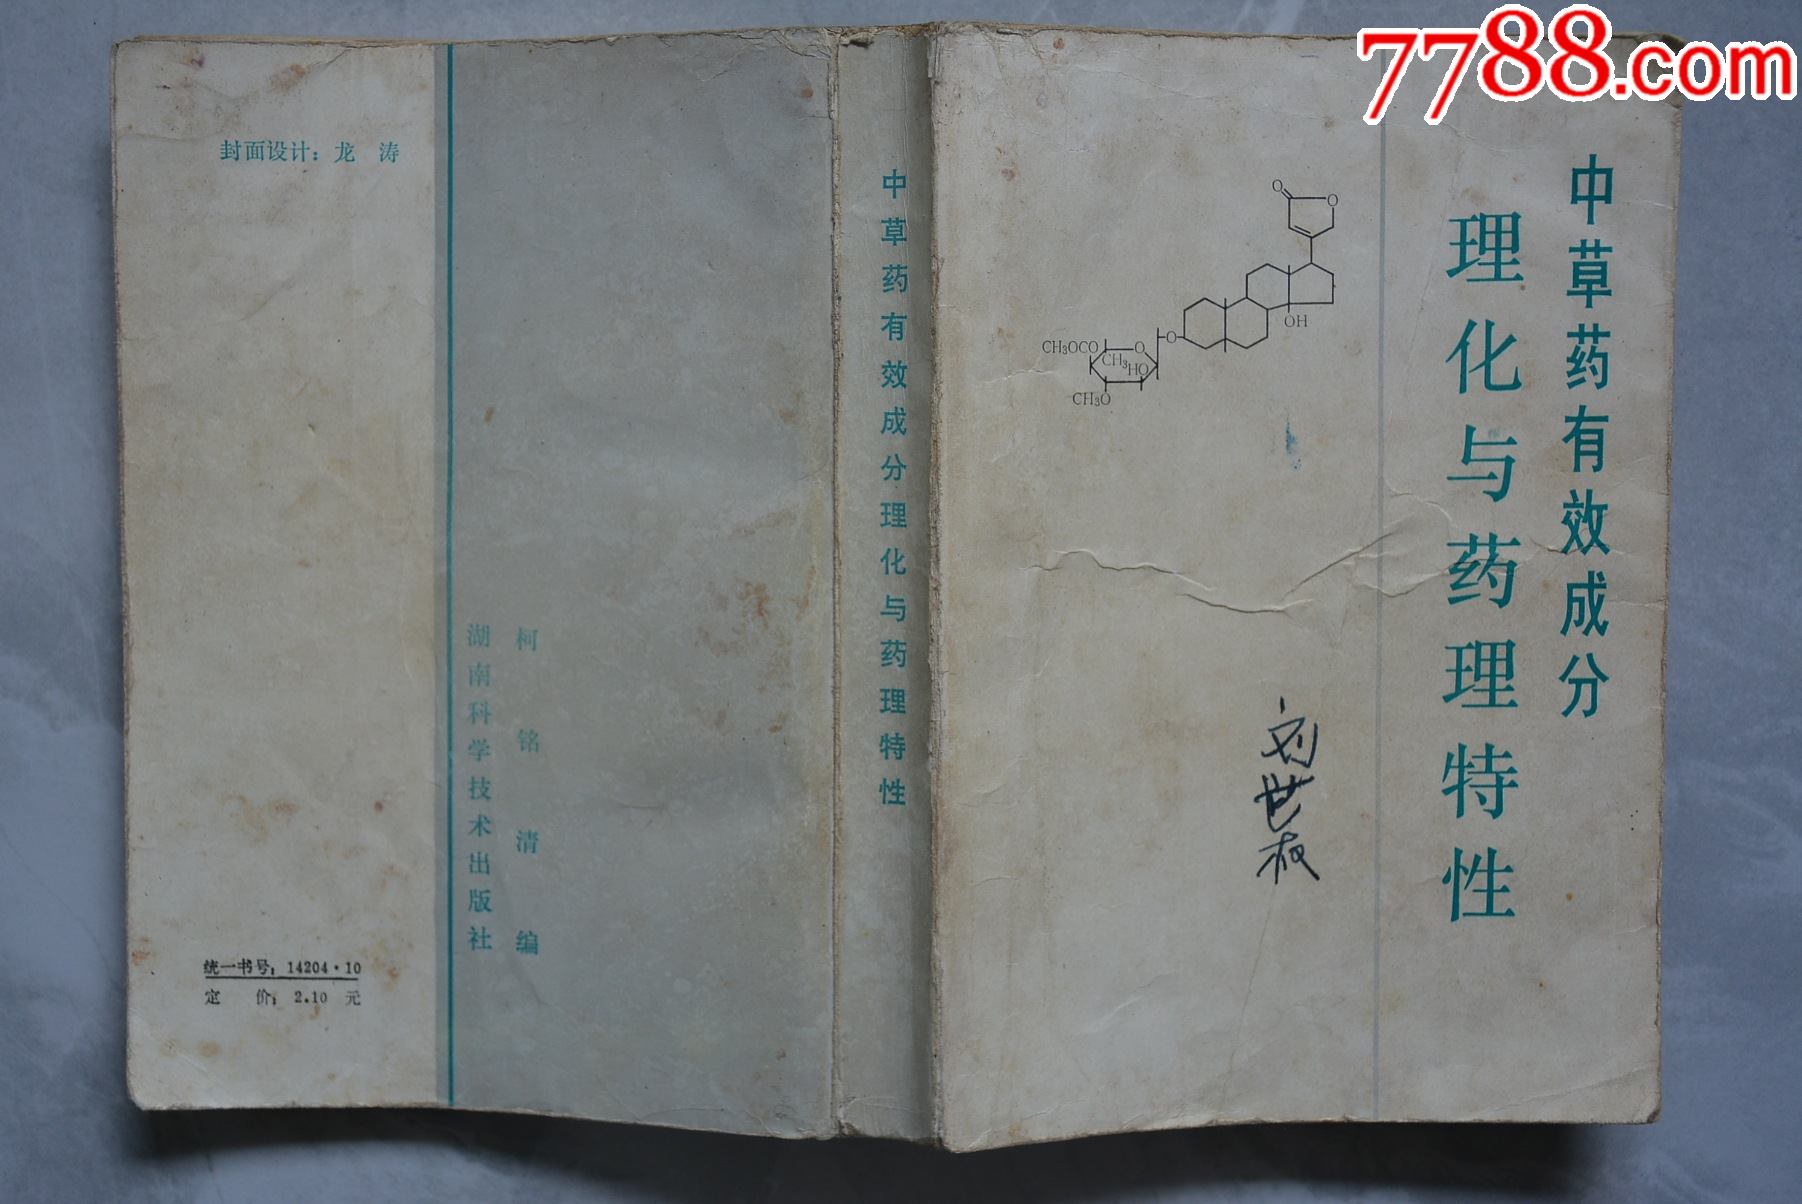 7788.com
中草药有效成分
理化与药理特性
O
O
OH
O
CH3OCO
O
CH3
HO
CH3O
刘世权
中草药有效成分理化与药理特性
柯铭清编
湖南科学技术出版社
封面设计：龙 涛
统一书号：14204·10
定 价：2.10 元